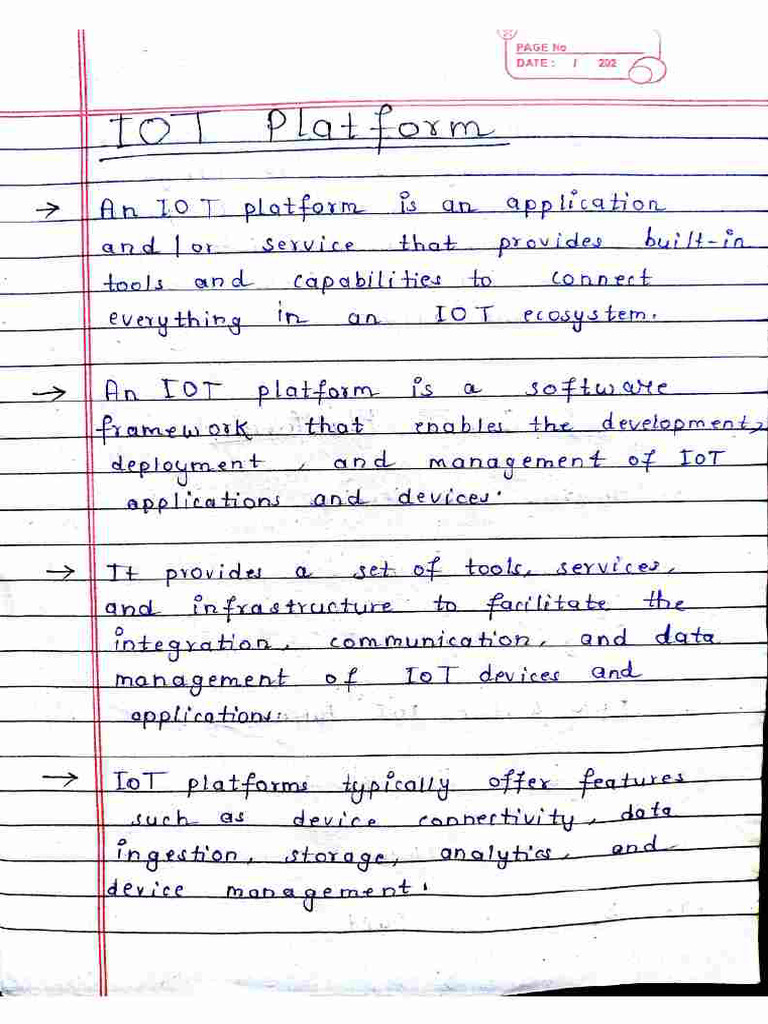 PAGE No
DATE : / 202
IOT Platform
→ An IOT platform is an application
and/or service that provides built-in
tools and capabilities to connect
everything in an IOT ecosystem.
→ An IOT platform is a software
framework that enables the development,
deployment, and management of IOT
applications and devices.
→ It provides a set of tools, services,
and infrastructure to facilitate the
integration, communication, and data
management of IOT devices and
applications.
→ IoT platforms typically offer features
such as device connectivity, data
ingestion, storage, analytics, and
device management.